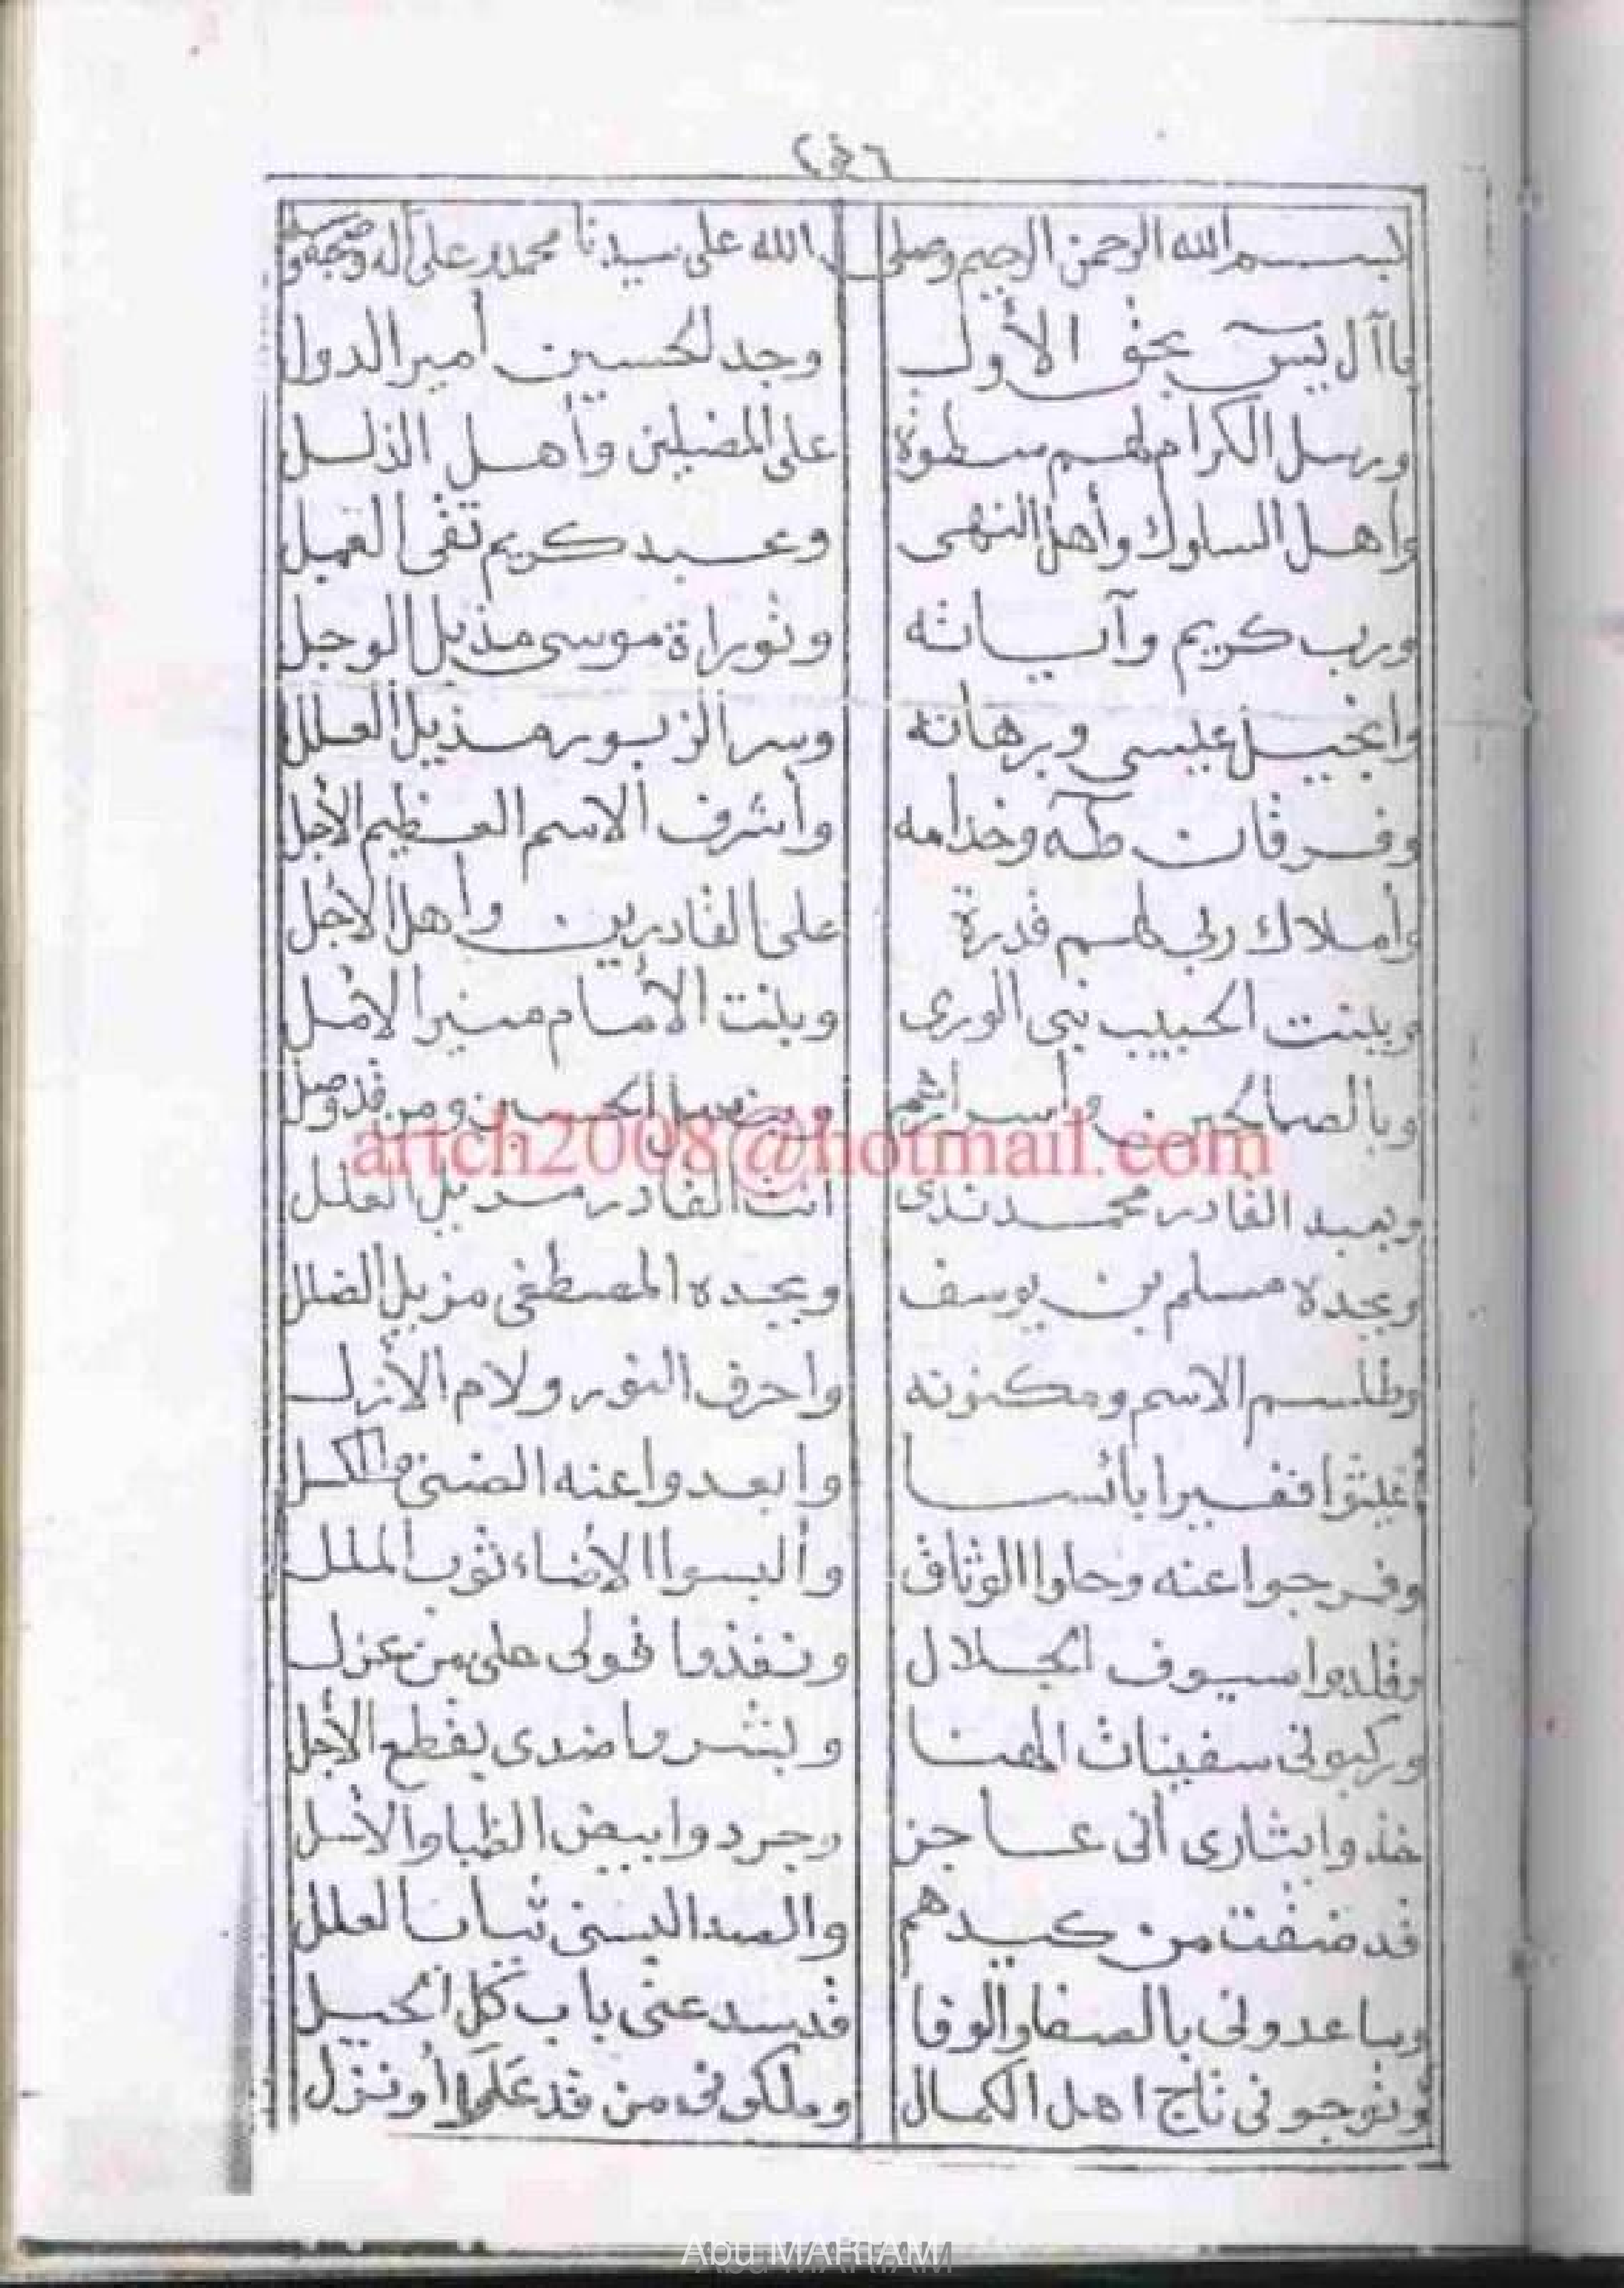 بسم الله الرحمن الرحيم وصلى الله على سيدنا محمد وعلى آله وصحبه و
يا آل يس بحق الأول وجد الحسين أمير الدول
ورسل الكرام لهم سطوة على المضلين وأهل الذلل
وأهل السلوك وأهل النهى وعبد كريم تقى العمل
ورب كريم وآياته وتوراة موسى مذيل الوجل
وانجيل عيسى وبرهانه وسر الزبور مذيل العلل
وفرقان طه وخدامه وأشرف الاسم العظيم الأجل
وأملاك ربي لهم قدرة على القادرين وأهل الأجل
وببنت الحبيب نبي الورى وبنت الأمام منير الأمل
وبالصالحين وأسرارهم الحسين ومن قد وصل
وبعبد القادر محمد ندى انت القادر مذيل العلل
وبجده مسلم بن يوسف وبجده المصطفى مزيل الضلل
وطلسم الاسم ومكنونه واحرف النور ولام الأزل
أغيثوا فقيرا بائسا وابعدوا عنه الضنى والكسل
وفرجوا عنه وحلوا الوثاق وألبسوا الأضاء ثوب الملل
وقلدوا سيوف الجلال ونفذوا قولى على من عزل
وركبونى سفينات الهنا وبنشر ما ضدى بقطع الأجل
خذوا بثارى أنى عاجز وجردوا بيض الظبا والأسل
قد ضقت من كيدهم والصد البسنى ثياب العلل
وساعدونى بالصفا والوفا قد سد عنى باب كل الحيل
وتوجونى تاج اهل الكمال وملكونى من قد علا أو نزل
artch2008@hotmail.com
Abu MARIAM